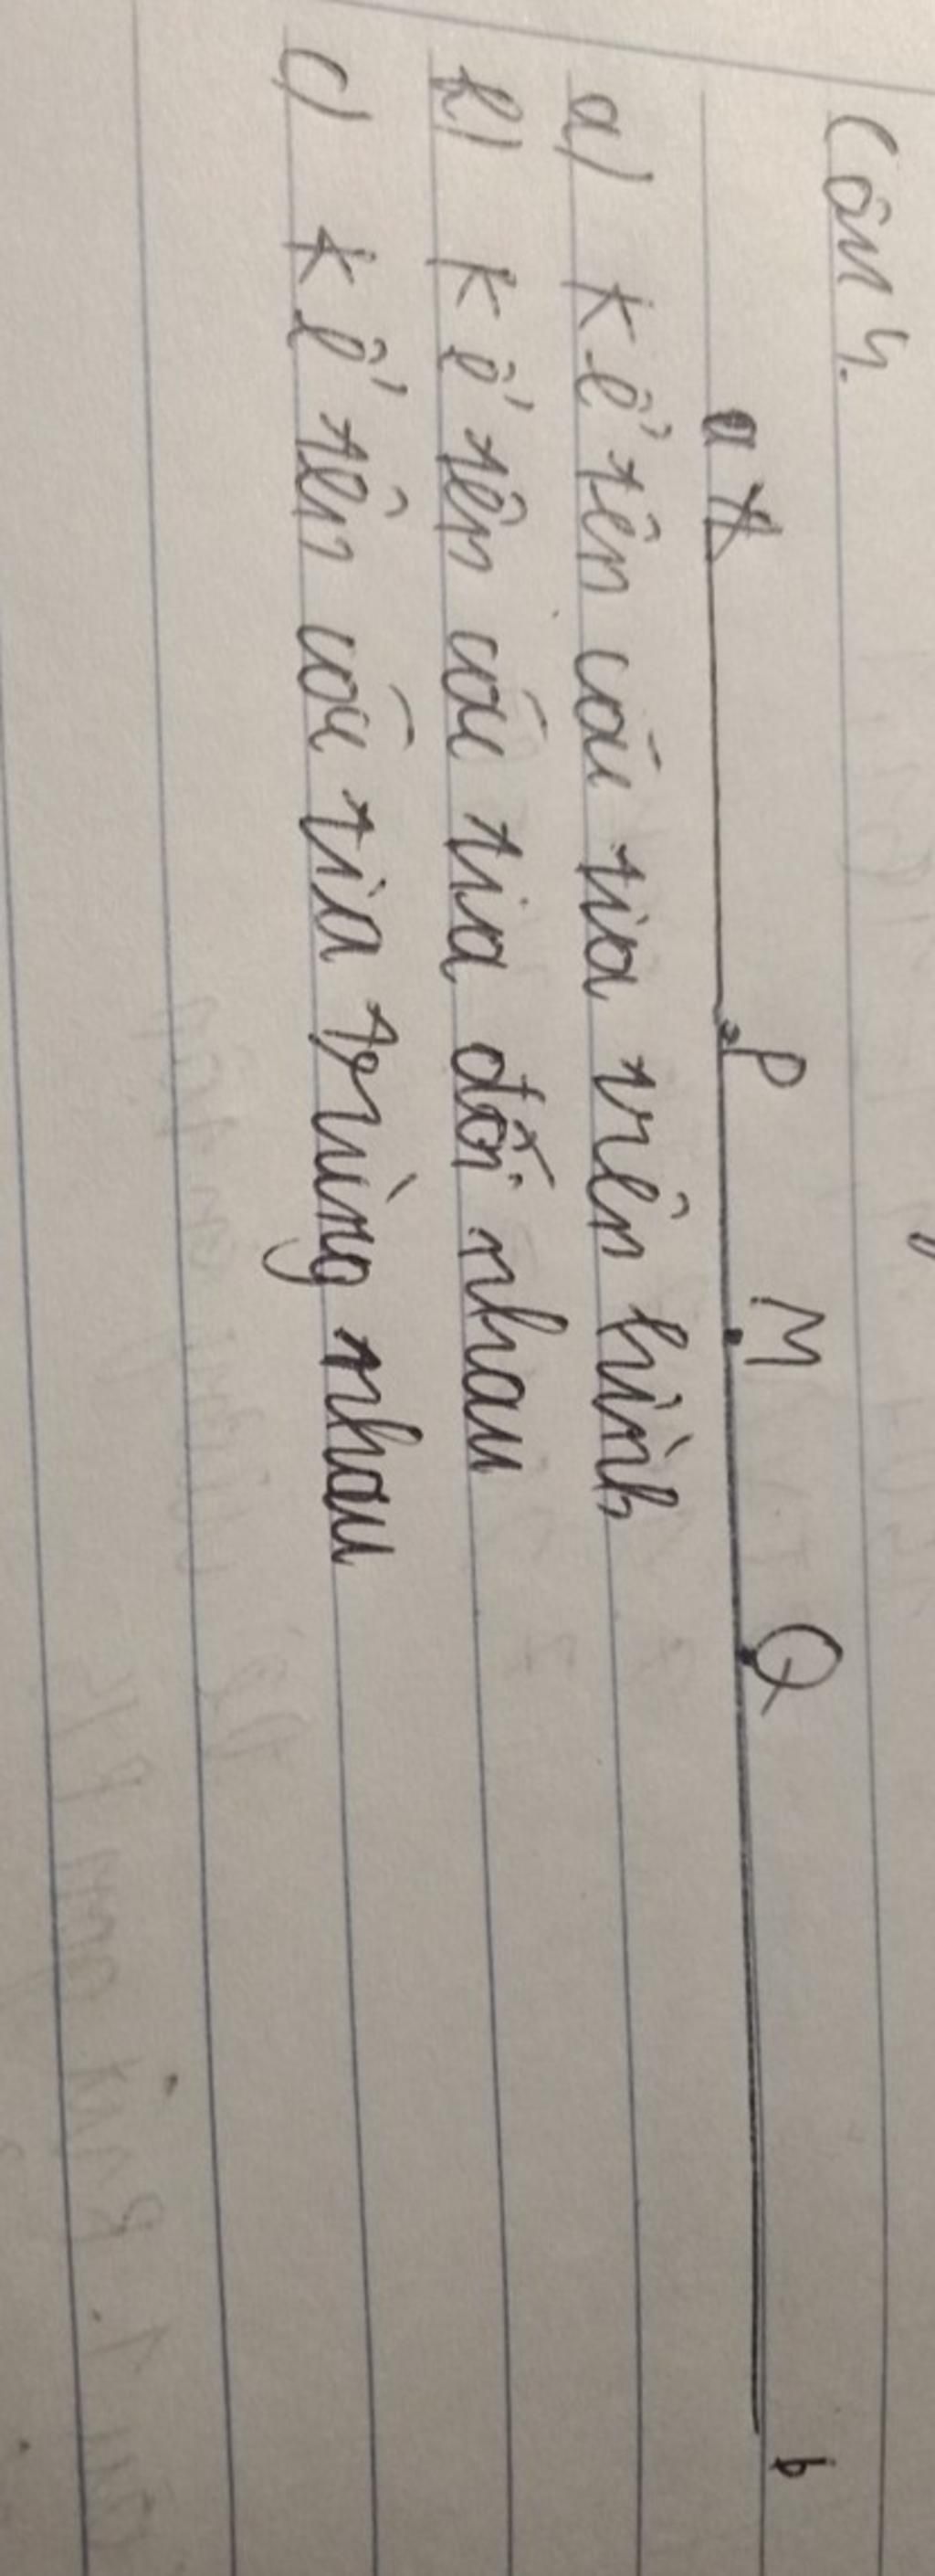 Câu 4.
a P M Q b
a) kể tên các tia trên hình
b) kể tên các tia đối nhau
c) kể tên các tia trùng nhau